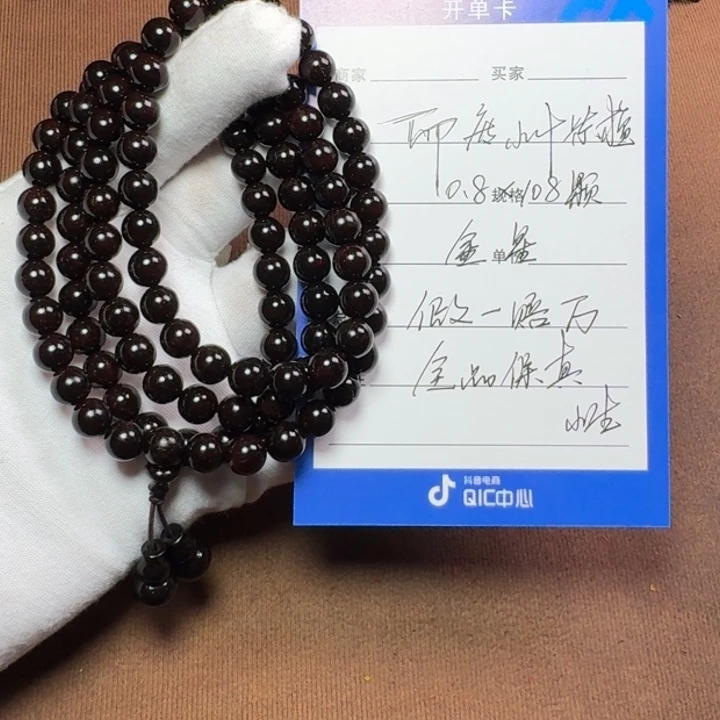 开单卡
商家 买家
印度小叶紫檀
0.8规格108颗
金单星
假一赔万
全品保真
抖音电商
QIC中心